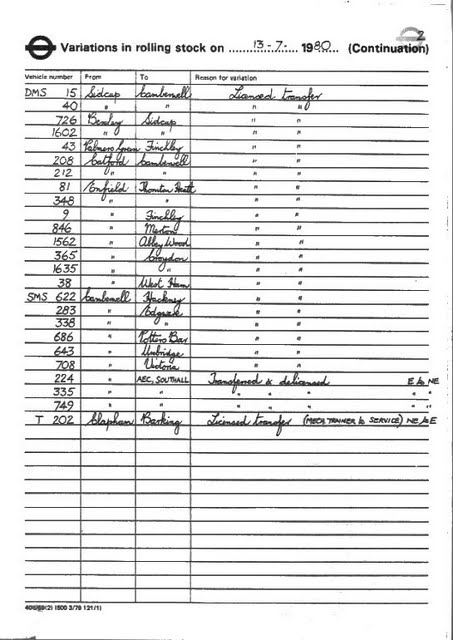 2
Variations in rolling stock on 13-7- 1980 (Continuation)
Vehicle number From To Reason for variation
DMS 15 Sidcup Camberwell Licenced transfer
40 " " " "
726 Bexley Sidcup " "
1602 " " " "
43 Palmers Green Finchley " "
208 Catford Camberwell " "
212 " " " "
81 Enfield Thornton Heath " "
348 " " " "
9 " Finchley " "
846 " Merton " "
1562 " Abbey Wood " "
365 " Croydon " "
1635 " " " "
38 " West Ham " "
SMS 622 Camberwell Hackney " "
283 " Edgware " "
338 " " " "
686 " Potters Bar " "
643 " Uxbridge " "
708 " Victoria " "
224 " AEC, SOUTHALL Transferred & delicensed E to NE
335 " " " " " " "
749 " " " " " " "
T 202 Clapham Barking Licensed transfer (MECH TRAINER to SERVICE) NE to E
1500 3/79 121/1)